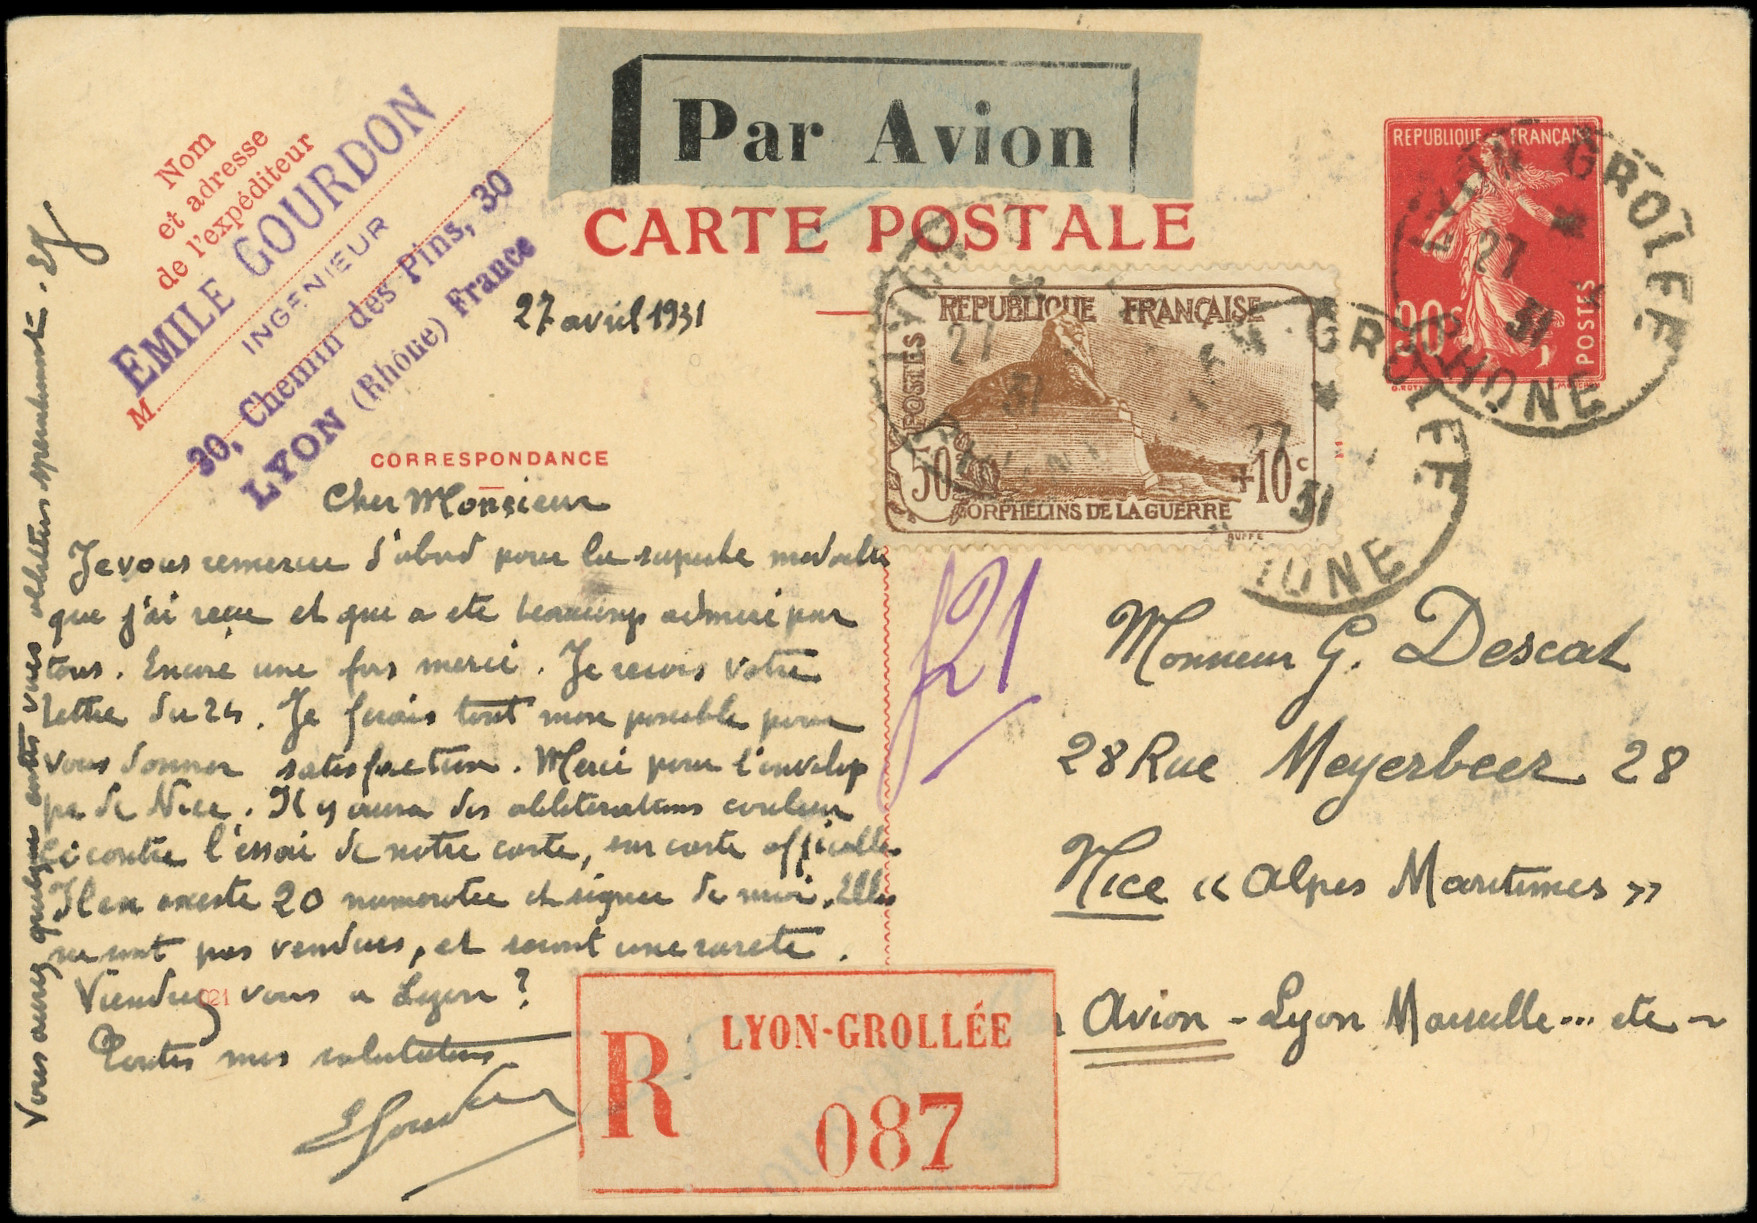 Par Avion
CARTE POSTALE
Nom
et adresse
de l'expéditeur
EMILE GOURDON
INGÉNIEUR
M
30, Chemin des Pins, 30
LYON (Rhône) France
27 avril 1931
REPUBLIQUE FRANÇAISE
POSTES
50 +10c
ORPHELINS DE LA GUERRE
RUFFE
REPUBLIQUE FRANÇAISE
90c
POSTES
LYON GROLÉE
27
31
RHONE
CORRESPONDANCE
Cher Monsieur
Je vous remercie d'abord pour la superbe medaille
que j'ai recue et que a eté beaucoup admiré par
tous. Encore une fois merci. Je recois votre
lettre du 24. Je ferais tout mon possible pour
vous donner satisfaction. Merci pour l'envelop
pe de Nice. Il y aura des obliterations couleur
ci contre l'essai de notre carte, sur carte officielle
Il en existe 20 numerotée et signée de moi. Elles
ne sont pas vendues, et seront une rareté.
Viendrez vous a Lyon?
Toutes mes salutations
EGourdon
Vous aurez quelques cartes vues obliterées
f21
Monsieur G. Descat
28 Rue Meyerbeer 28
Nice « Alpes Maritimes »
Avion - Lyon Marseille... etc -
R
LYON-GROLLÉE
087
021